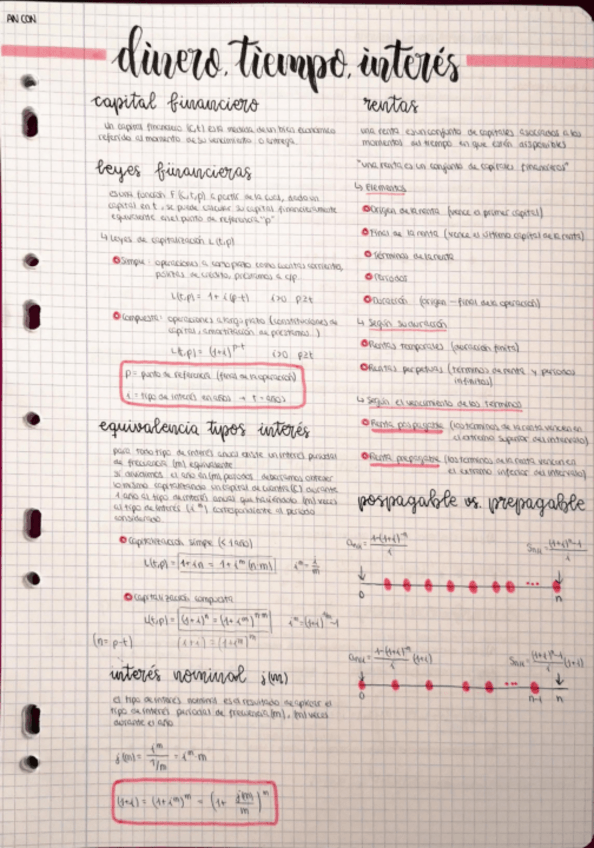 AN CON
dinero, tiempo, interés
capital financiero
un capital financiero (C,t) es la medida de un bien económico
referido al momento de su vencimiento o entrega.
leyes financieras
es una función F(C,t,p) a partir de la cual, dado un
capital en t, se puede calcular su capital financieramente
equivalente en el punto de referencia "p"
↳ Leyes de capitalización L(t,p)
Simple: operaciones a corto plazo como cuentas corrientes,
pólizas de crédito, préstamos a c/p.
L(t,p) = 1 + i(p-t) i>0 p≥t
Compuesta: operaciones a largo plazo (constituciones de
capital, amortización de préstamos...)
L(t,p) = (1+i)^p-t i>0 p≥t
p = punto de referencia (final de la operación)
i = tipo de interés en años → t = años
equivalencia tipos interés
para todo tipo de interés anual existe un interés periodal
de frecuencia (m) equivalente
si dividimos el año en (m) periodos debemos obtener
lo mismo capitalizando un capital de cuantía (C) durante
1 año al tipo de interés anual que haciéndolo (m) veces
al tipo de interés (i^m) correspondiente al periodo
considerado.
Capitalización simple (< 1 año)
L(t,p) = 1+in = 1+i^m (n·m) i^m = i/m
Capitalización compuesta
L(t,p) = (1+i)^n = (1+i^m)^n·m i^m = (1+i)^1/m -1
(n = p-t) (1+i) = (1+i^m)^m
interés nominal j(m)
el tipo de interés nominal es el resultado de aplicar el
tipo de interés periodal de frecuencia (m), (m) veces
durante el año
j(m) = i^m / 1/m = i^m · m
(1+i) = (1+i^m)^m = (1 + j(m)/m)^m
rentas
una renta es un conjunto de capitales asociados a los
momentos del tiempo en que están disponibles
"una renta es un conjunto de capitales financieros"
↳ Elementos
Origen de la renta (vence el primer capital)
Final de la renta (vence el último capital de la renta)
Términos de la renta
Periodos
Duración (origen - final de la operación)
↳ Según su duración
Rentas temporales (duración finita)
Rentas perpetuas (términos de renta y periodos
infinitos)
↳ Según el vencimiento de los términos
Renta pospagable (los términos de la renta vencen en
el extremo superior del intervalo)
Renta prepagable (los términos de la renta vencen en
el extremo inferior del intervalo)
pospagable vs. prepagable
an¬i = 1-(1+i)^-n / i Sn¬i = (1+i)^n -1 / i
0 ... n
än¬i = 1-(1+i)^-n / i (1+i) S̈n¬i = (1+i)^n -1 / i (1+i)
0 ... n-1 n